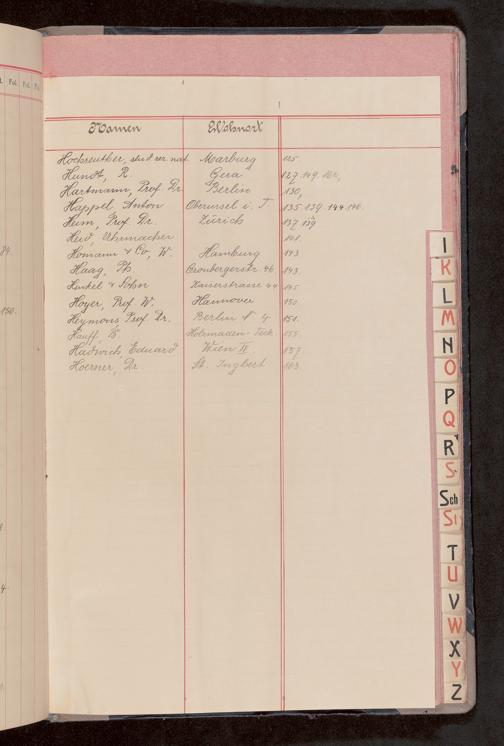 Fol. Fol. Fol.
Namen Wohnort
Hochreuther, stud. rer. nat. Marburg 125.
Hundt, R. Gera 127. 149. 160,
Hartmann, Prof Dr. Berlin 130,
Happel Anton Oberursel i. T. 135. 139. 144. 146.
Heim, Prof. Dr. Zürich 137 139
Heid, Uhrmacher 141.
Homann & Co, W. Hamburg 143
Haag, Ph. Cronbergerstr. 46. 143.
Henkel & Sohn Kaiserstrasse 44 145
Hoyer, Prof W. Hannover 150
Heymons Prof. Dr. Berlin N 4 151.
Hauff, B. Holzmaden-Teck. 155.
Hadwich, Eduard Wien IV. 157
Hoerner, Dr St. Ingbert 163.
150.
I
K
L
M
N
O
P
Q
R
S
Sch
St
T
U
V
W
X
Y
Z